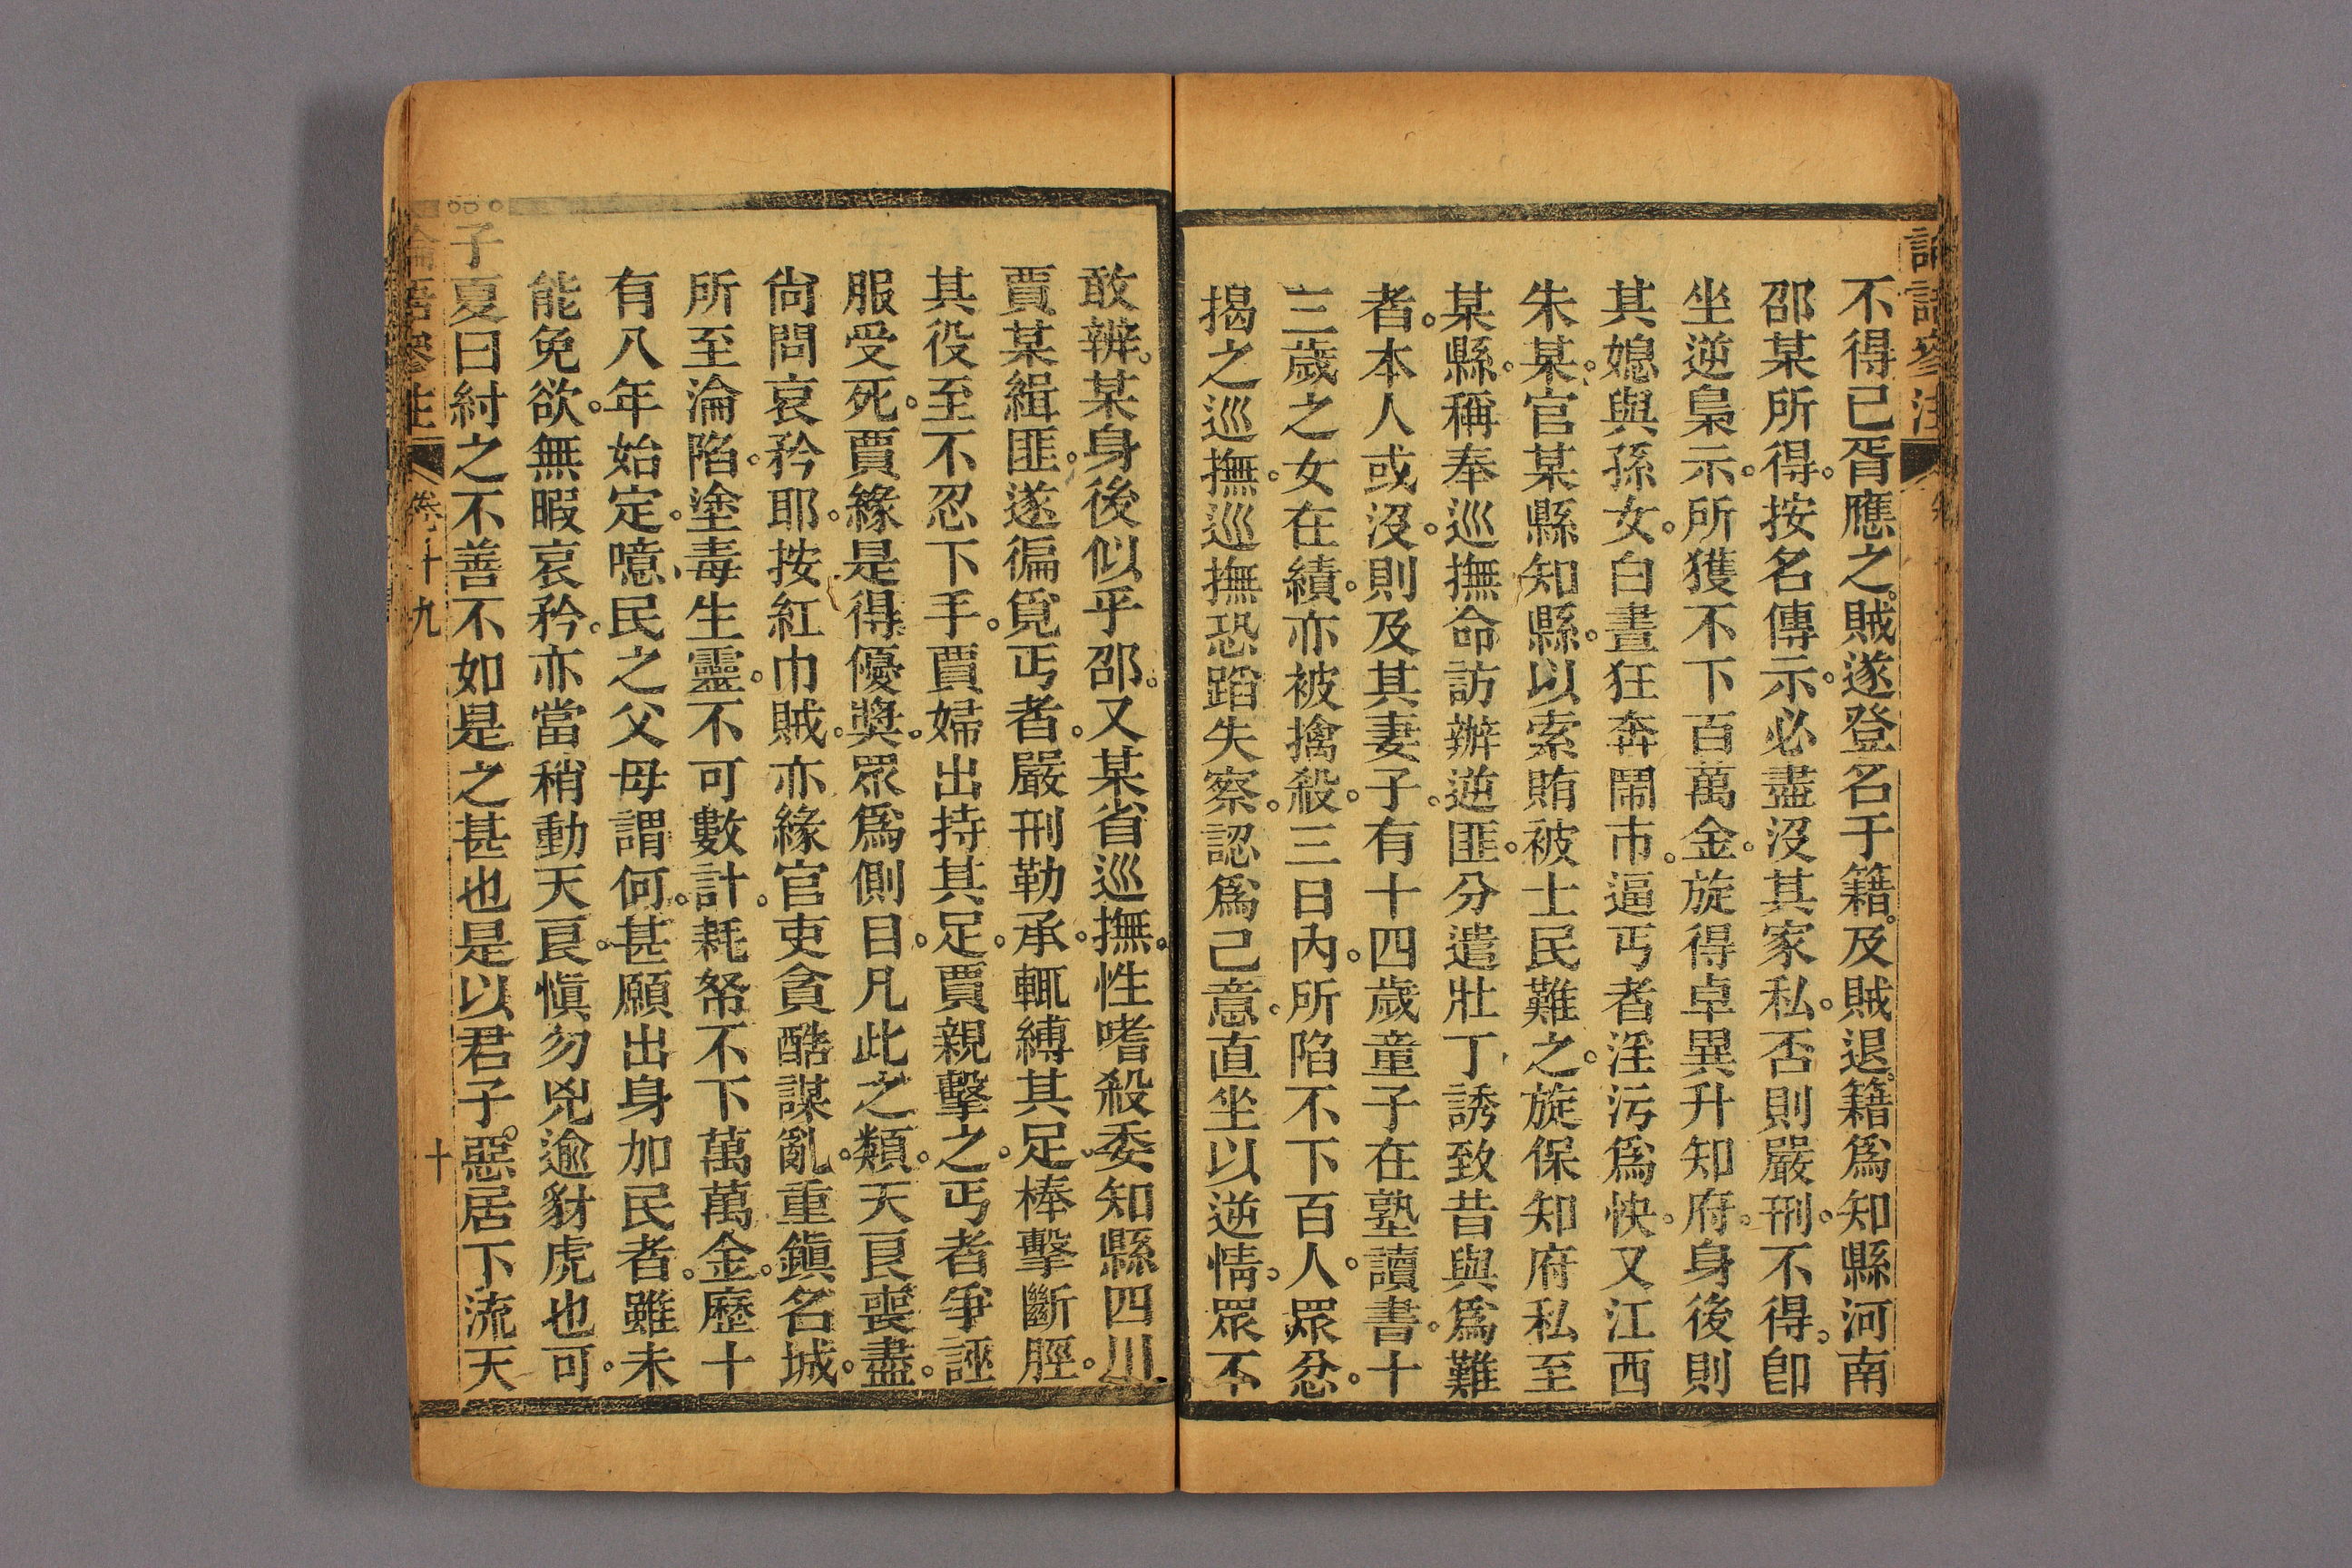 不得已胥應之。賊遂登名于籍。及賊退。籍爲知縣河南
邵某所得。按名傳示。必盡沒其家私。否則嚴刑。不得。卽
坐逆梟示。所獲不下百萬金。旋得卓異升知府。身後則
其媳與孫女。白晝狂奔鬧市。逼丐者淫污爲快。又江西
朱某。官某縣知縣。以索賄被士民難之。旋保知府私至
某縣。稱奉巡撫命訪辦逆匪。分遣壯丁誘致昔與爲難
者。本人或沒。則及其妻子。有十四歲童子在塾讀書。十
三歲之女在績。亦被擒殺。三日內。所陷不下百人。眾忿。
揭之巡撫。巡撫恐蹈失察。認爲己意。直坐以逆情。眾不
敢辨。某身後似乎邵。又某省巡撫。性嗜殺委知縣四川
賈某緝匪。遂徧覓丐者。嚴刑勒承。輒縛其足。棒擊斷脛。
其役至不忍下手。賈婦出持其足。賈親擊之。丐者爭誣
服受死。賈緣是得優奬。眾爲側目。凡此之類。天良喪盡。
尙問哀矜耶。按紅巾賊。亦緣官吏貪酷謀亂。重鎭名城。
所至淪陷。塗毒生靈。不可數計。耗帑不下萬萬金。歷十
有八年始定。噫、民之父母謂何。甚願出身加民者。雖未
能免欲。無暇哀矜。亦當稍動天良。愼勿兇逾豺虎也可。
子夏曰紂之不善不如是之甚也是以君子。惡居下流天
論語參注 卷十九 十